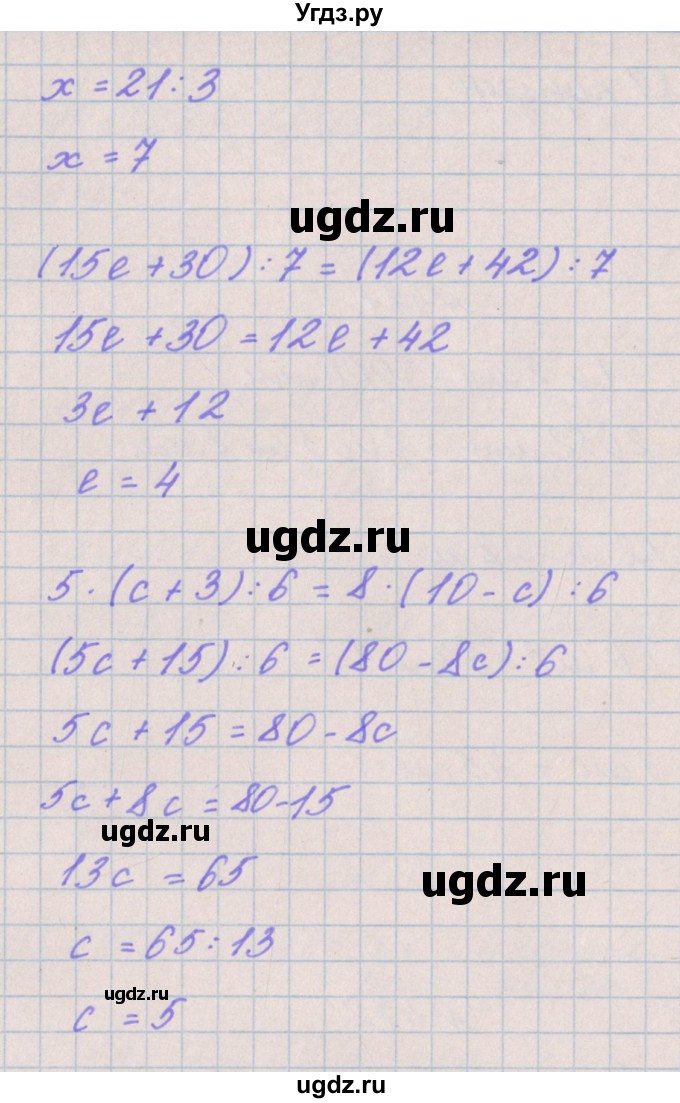 Угдз.ру
x = 21 : 3
x = 7
ugdz.ru
(15e + 30) : 7 = (12e + 42) : 7
15e + 30 = 12e + 42
3e + 12
e = 4
ugdz.ru
5 · (c + 3) : 6 = 8 · (10 - c) : 6
(5c + 15) : 6 = (80 - 8c) : 6
5c + 15 = 80 - 8c
5c + 8c = 80 - 15
ugdz.ru
13c = 65
ugdz.ru
c = 65 : 13
ugdz.ru
c = 5
ugdz.ru